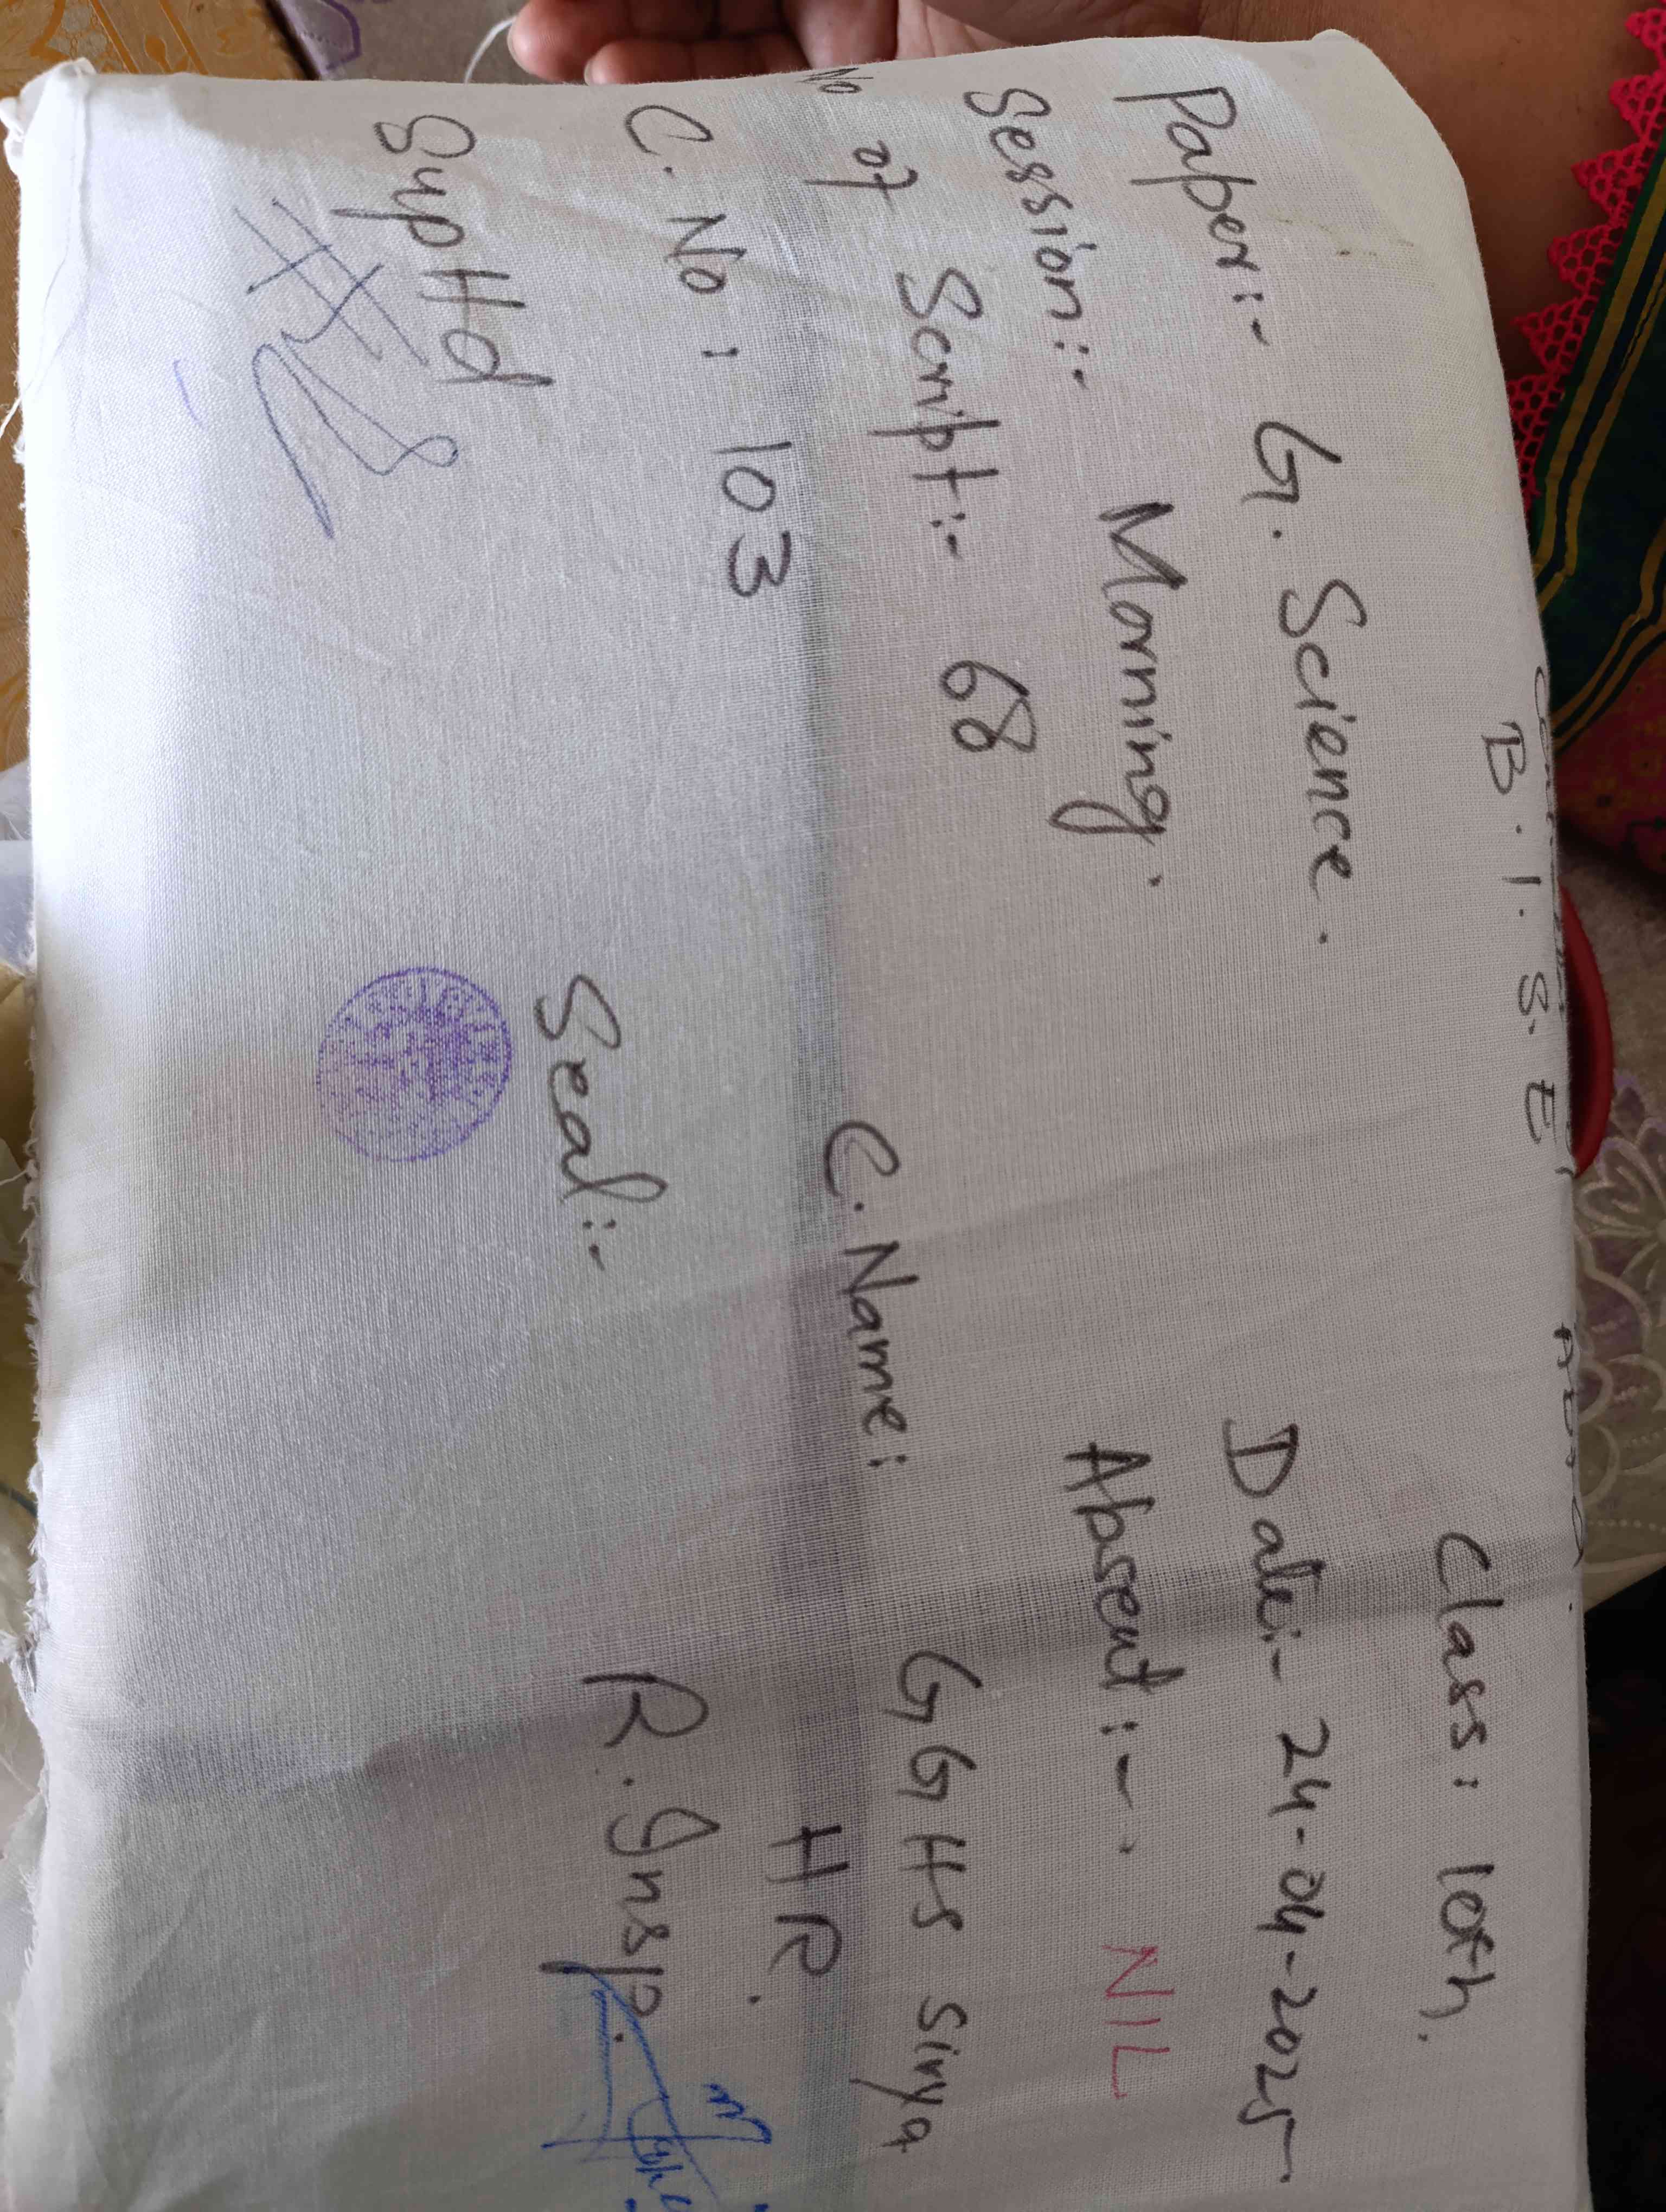 B.I.S.E
Class: 10th.
Paper:- G. Science.
Date:- 24-04-2025
Session:- Morning.
Absent:- NIL
No of Script:- 68
C. Name: GGHS Sirya
HR.
C. No: 103
Seal:-
R. Insp.
SupHd